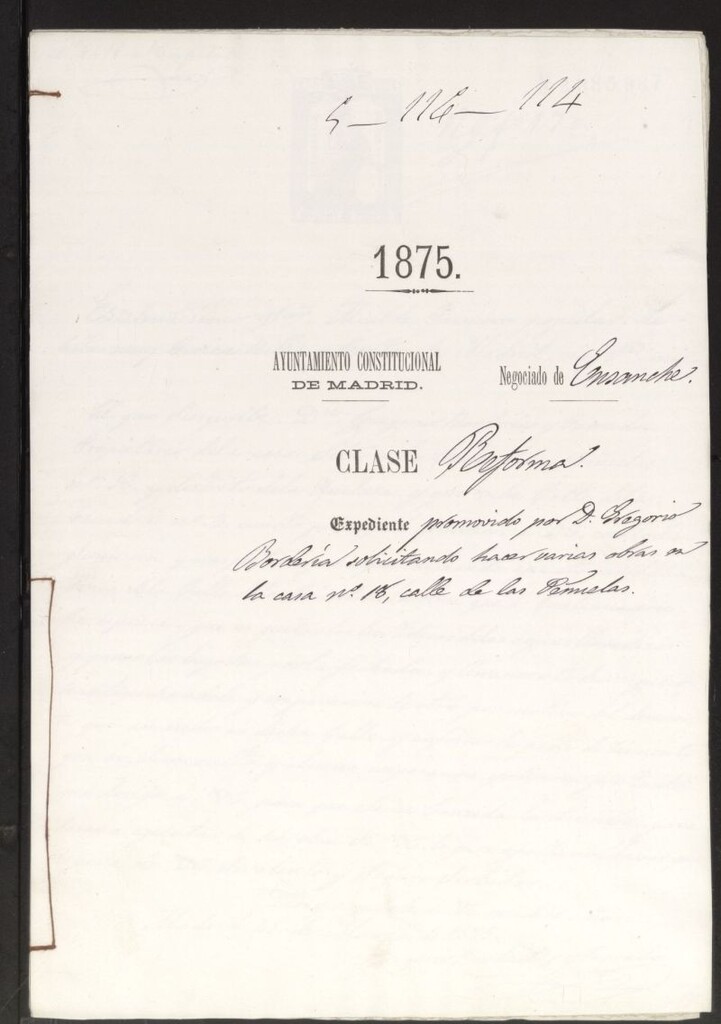 5 - 116 - 114
1875.
AYUNTAMIENTO CONSTITUCIONAL
DE MADRID.
Negociado de Ensanche.
CLASE Reforma.
Expediente promovido por D. Gregorio
Bordería solicitando hacer varias obras en
la casa nº. 18, calle de las Peñuelas.